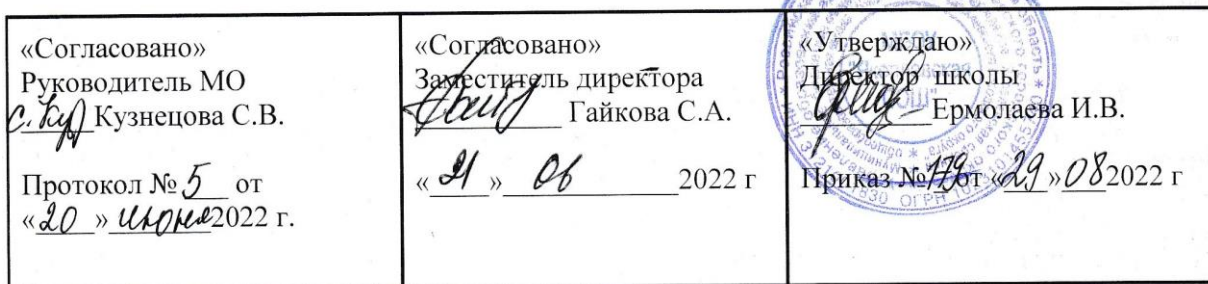 «Согласовано»
Руководитель МО
С. Ку Кузнецова С.В.
Протокол № 5 от
«20» июня 2022 г.
«Согласовано»
Заместитель директора
Гайкова С.А.
«21» 06 2022 г
«Утверждаю»
Директор школы
Ермолаева И.В.
Приказ № 179 от «29» 08 2022 г